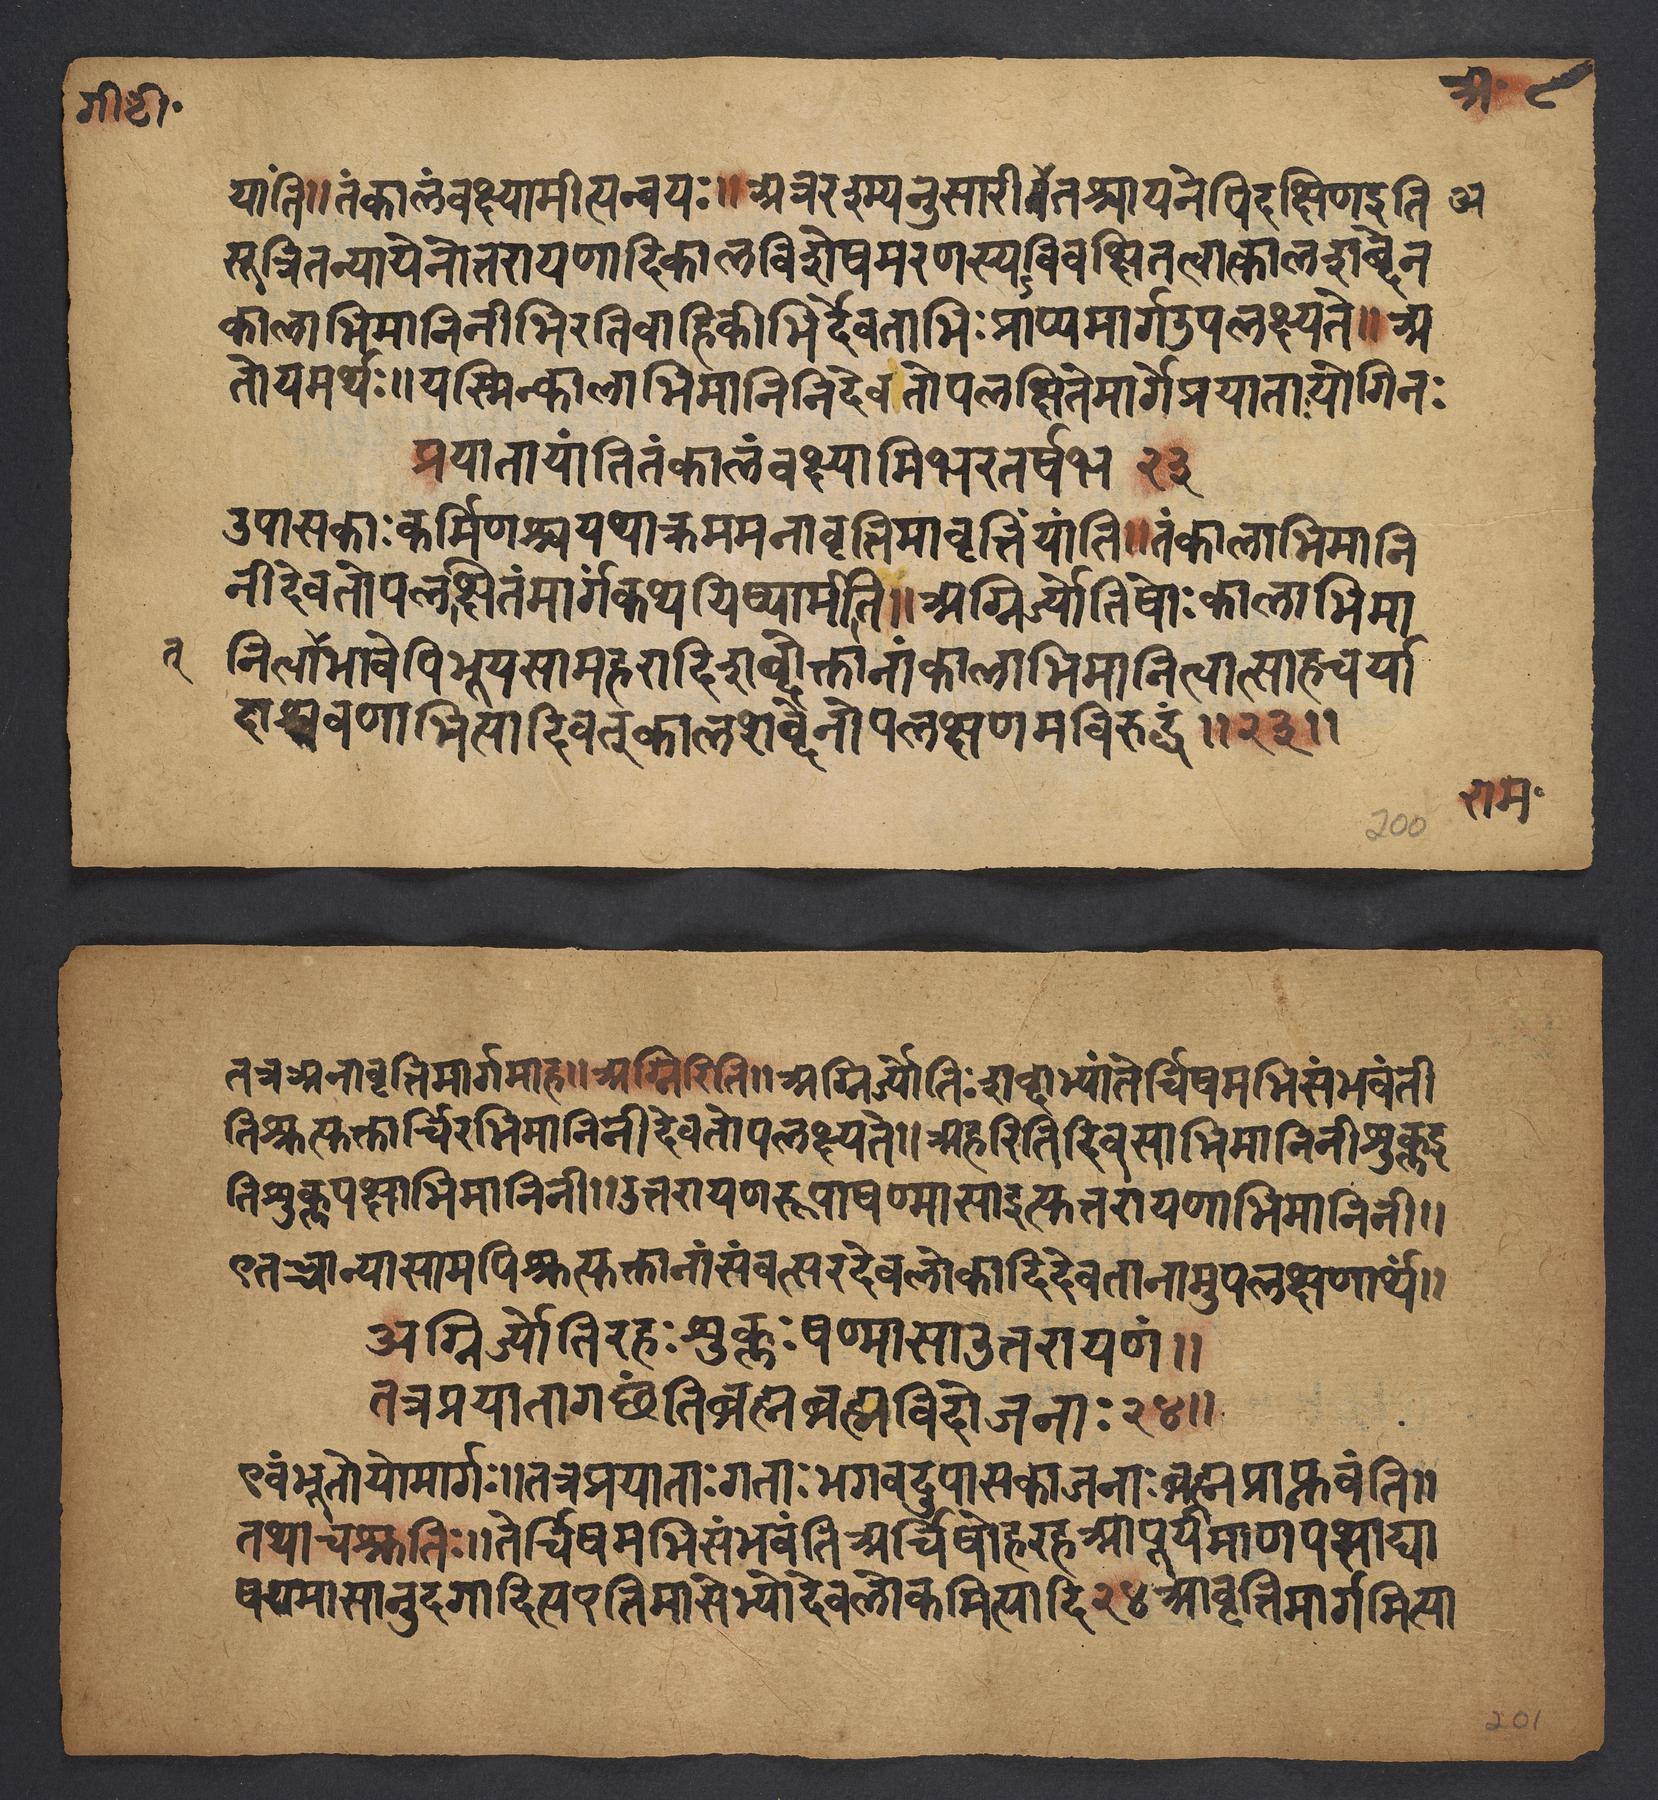 गी॰टी॰
अ॰ ८
यांति॥तंकालंवक्ष्यामीत्यन्वयः॥अत्ररश्म्यनुसारीअतश्चायनेपिदक्षिणइति अ
सूत्रितन्यायेनोत्तरायणादिकालविशेषमरणस्यविवक्षितत्वात्कालशब्देन
कालाभिमानिनीभिरतिवाहिकीभिर्देवताभिःप्राप्यमार्गउपलक्ष्यते॥अ
तोयमर्थः॥यस्मिन्कालाभिमानिनिदेवतोपलक्षितेमार्गेप्रयातायोगिनः
प्रयातायांतितंकालंवक्ष्यामिभरतर्षभ २३
उपासकाःकर्मिणश्चयथाक्रममनावृत्तिमावृत्तिंयांति॥तंकालाभिमानि
नीदेवतोपलक्षितंमार्गंकथयिष्यामीति॥अग्निर्ज्योतिषोःकालाभिमा
त् नित्वाभावेपिभूयसामहरादिशब्दोक्तानांकालाभिमानित्वात्साहचर्या
दाम्रवणामित्यादिवत्कालशब्देनोपलक्षणमविरुद्धं॥२३॥
राम॰
200
तत्रअनावृत्तिमार्गमाह॥अग्निरिति॥अग्निर्ज्योतिःशब्दाभ्यांतेर्चिषमभिसंभवंती
तिश्रुत्युक्तार्चिरभिमानिनीदेवतोपलक्ष्यते॥अहरितिदिवसाभिमानिनीशुक्लइ
तिशुक्लपक्षाभिमानिनी॥उत्तरायणरूपाषण्मासाइत्युत्तरायणाभिमानिनी॥
एतच्चान्यासामपिश्रुत्युक्तानांसंवत्सरदेवलोकादिदेवतानामुपलक्षणार्थं॥
अग्निर्ज्योतिरहःशुक्लःषण्मासाउत्तरायणं॥
तत्रप्रयातागछंतिब्रह्मब्रह्मविदोजनाः२४॥
एवंभूतोयोमार्गः॥तत्रप्रयाताःगताःभगवदुपासकाजनाःब्रह्मप्राप्नुवंति॥
तथाचश्रुतिः॥तेर्चिषमभिसंभवंतिअर्चिषोहरह्नआपूर्यमाणपक्षाद्या
षण्मासानुदगादित्यएतिमासेभ्योदेवलोकमित्यादि२४आवृत्तिमार्गमित्या
201